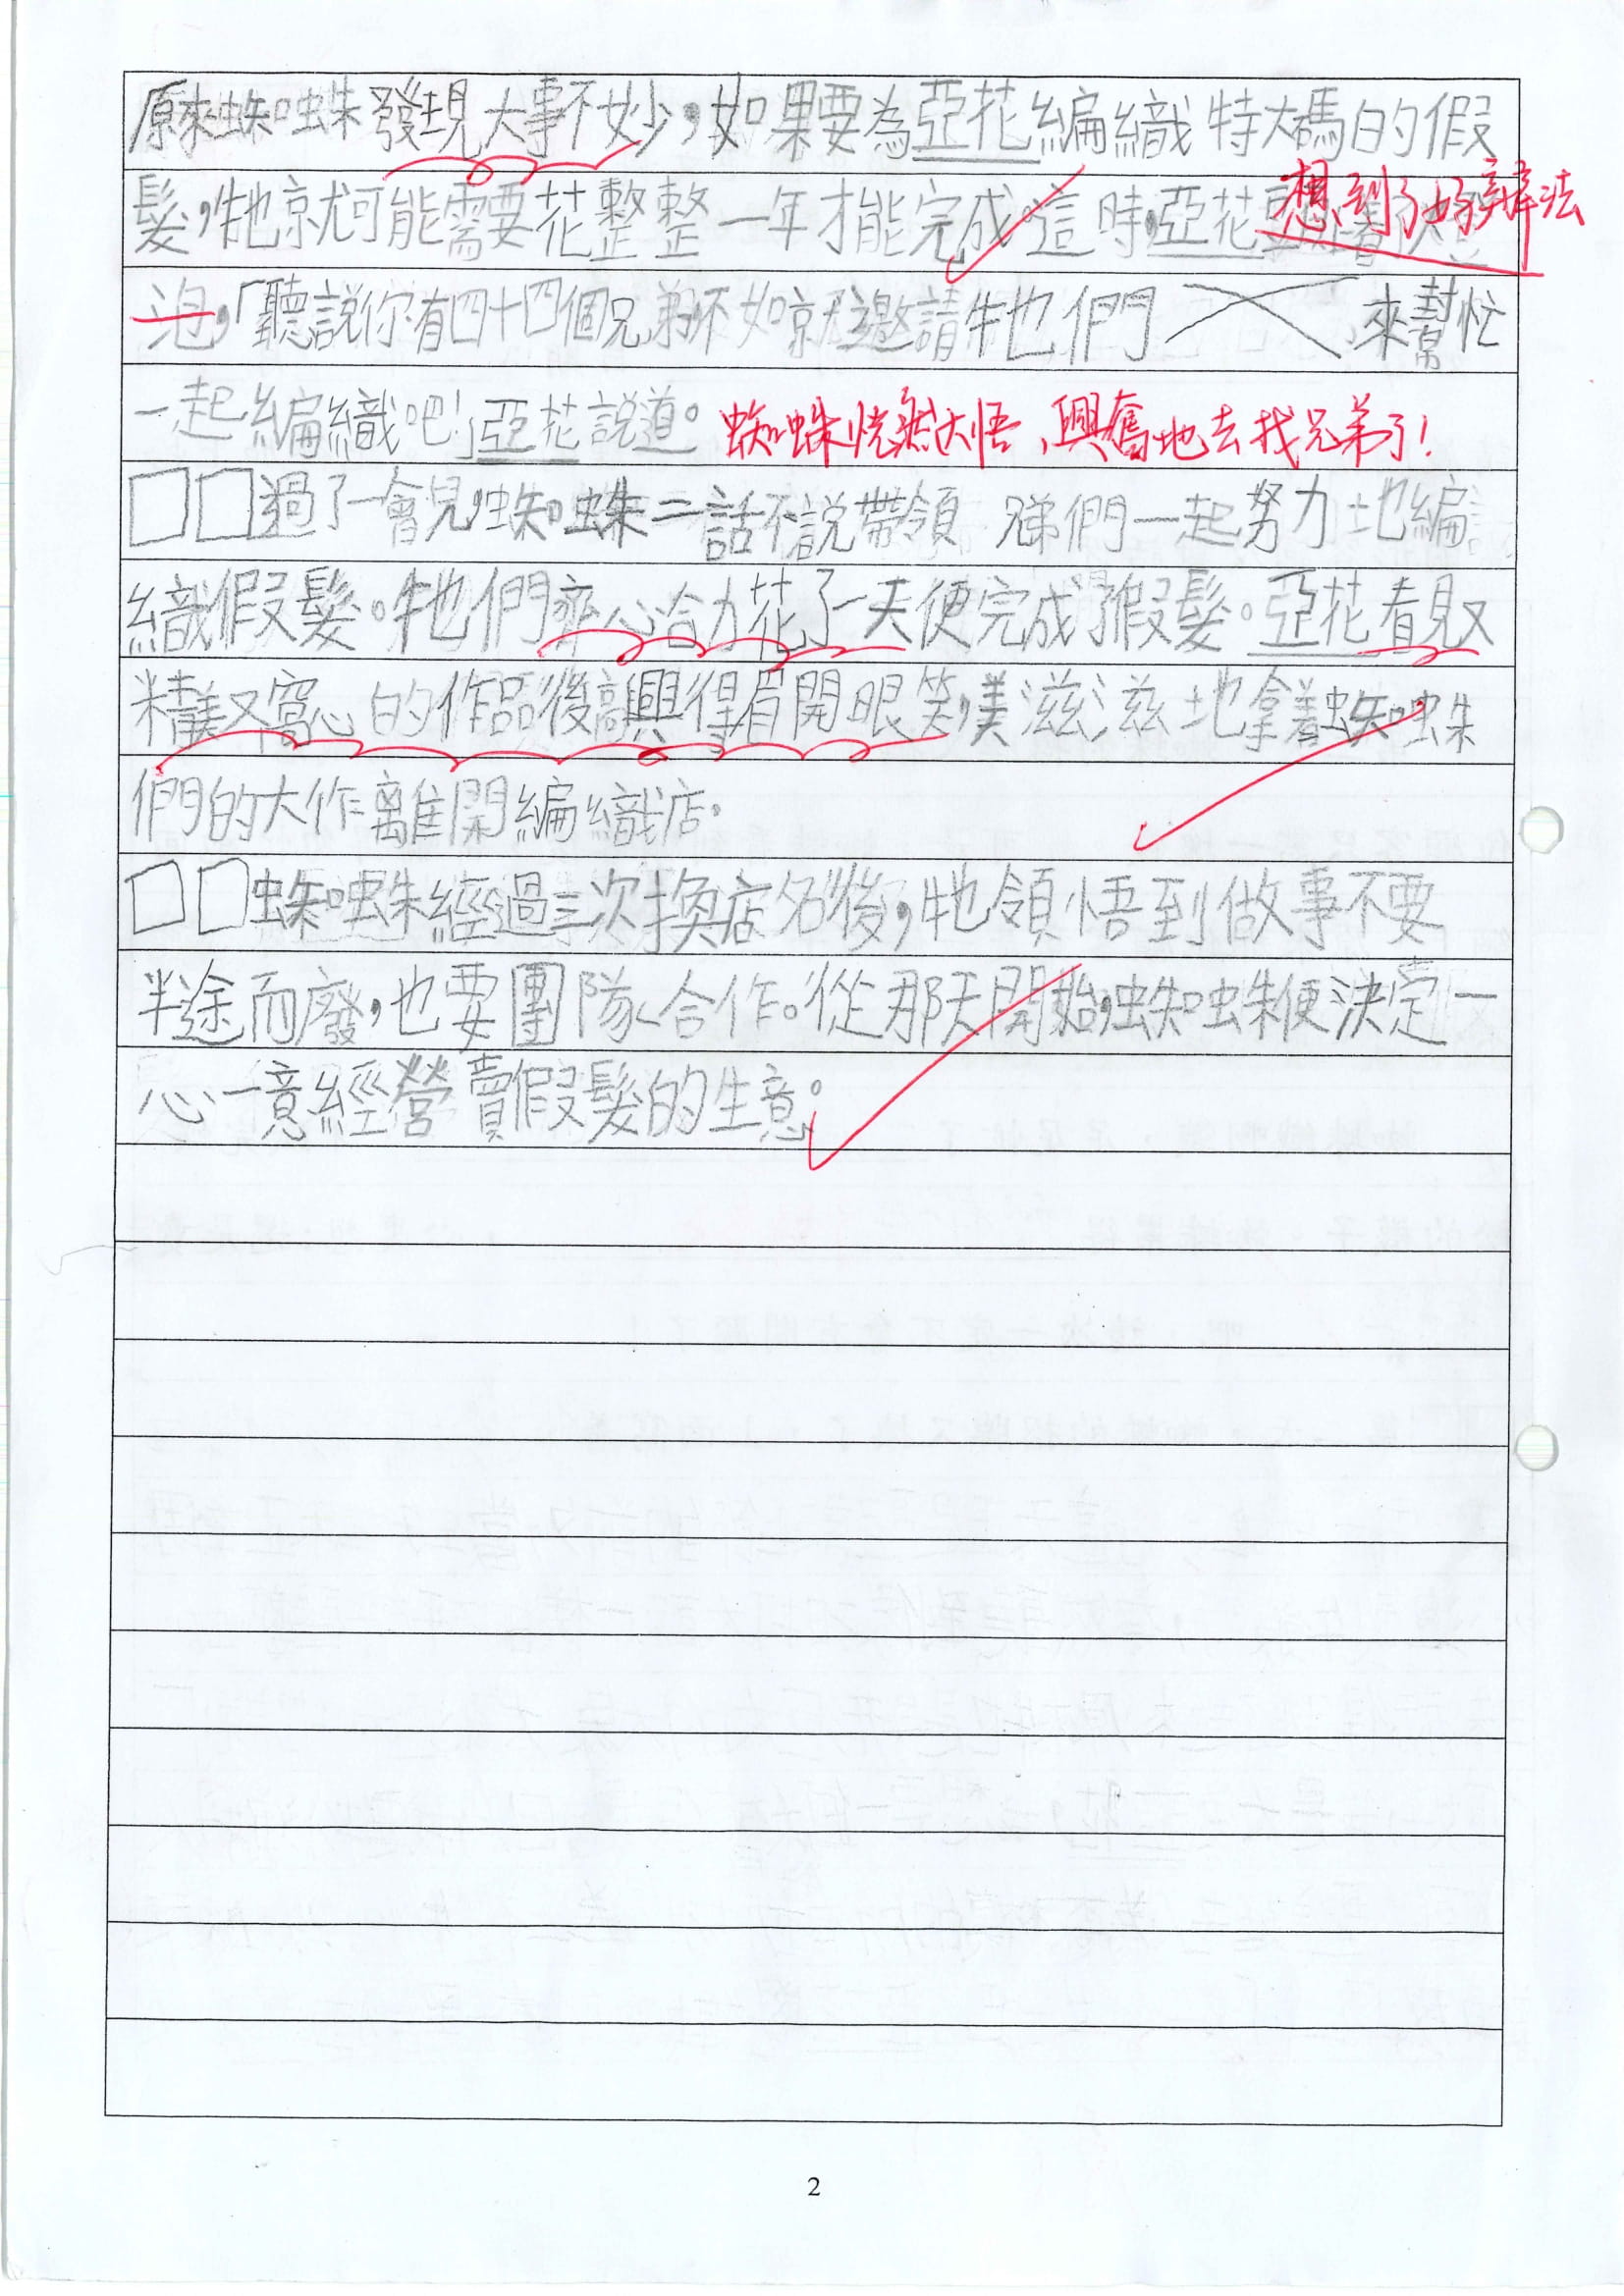 原來蜘蛛發現大事不妙，如果要為亞花編織特大碼的假
想到了好辦法
髮，牠就可能需要花整整一年才能完成。這時，亞花
泡，「聽說你有四十四個兄弟，不如就邀請牠們來幫忙
一起編織吧！」亞花說道。蜘蛛恍然大悟，興奮地去找兄弟了！
過了一會兒，蜘蛛二話不說帶領 兄弟們一起努力地編
織假髮。牠們齊心合力花了一天便完成了假髮。亞花看見又
精美又窩心的作品後高興得眉開眼笑，美滋滋地拿着蜘蛛
們的大作離開編織店。
蜘蛛經過三次換店名後，牠領悟到做事不要
半途而廢，也要團隊合作。從那天開始，蜘蛛便決定一
心一意經營賣假髮的生意。
2